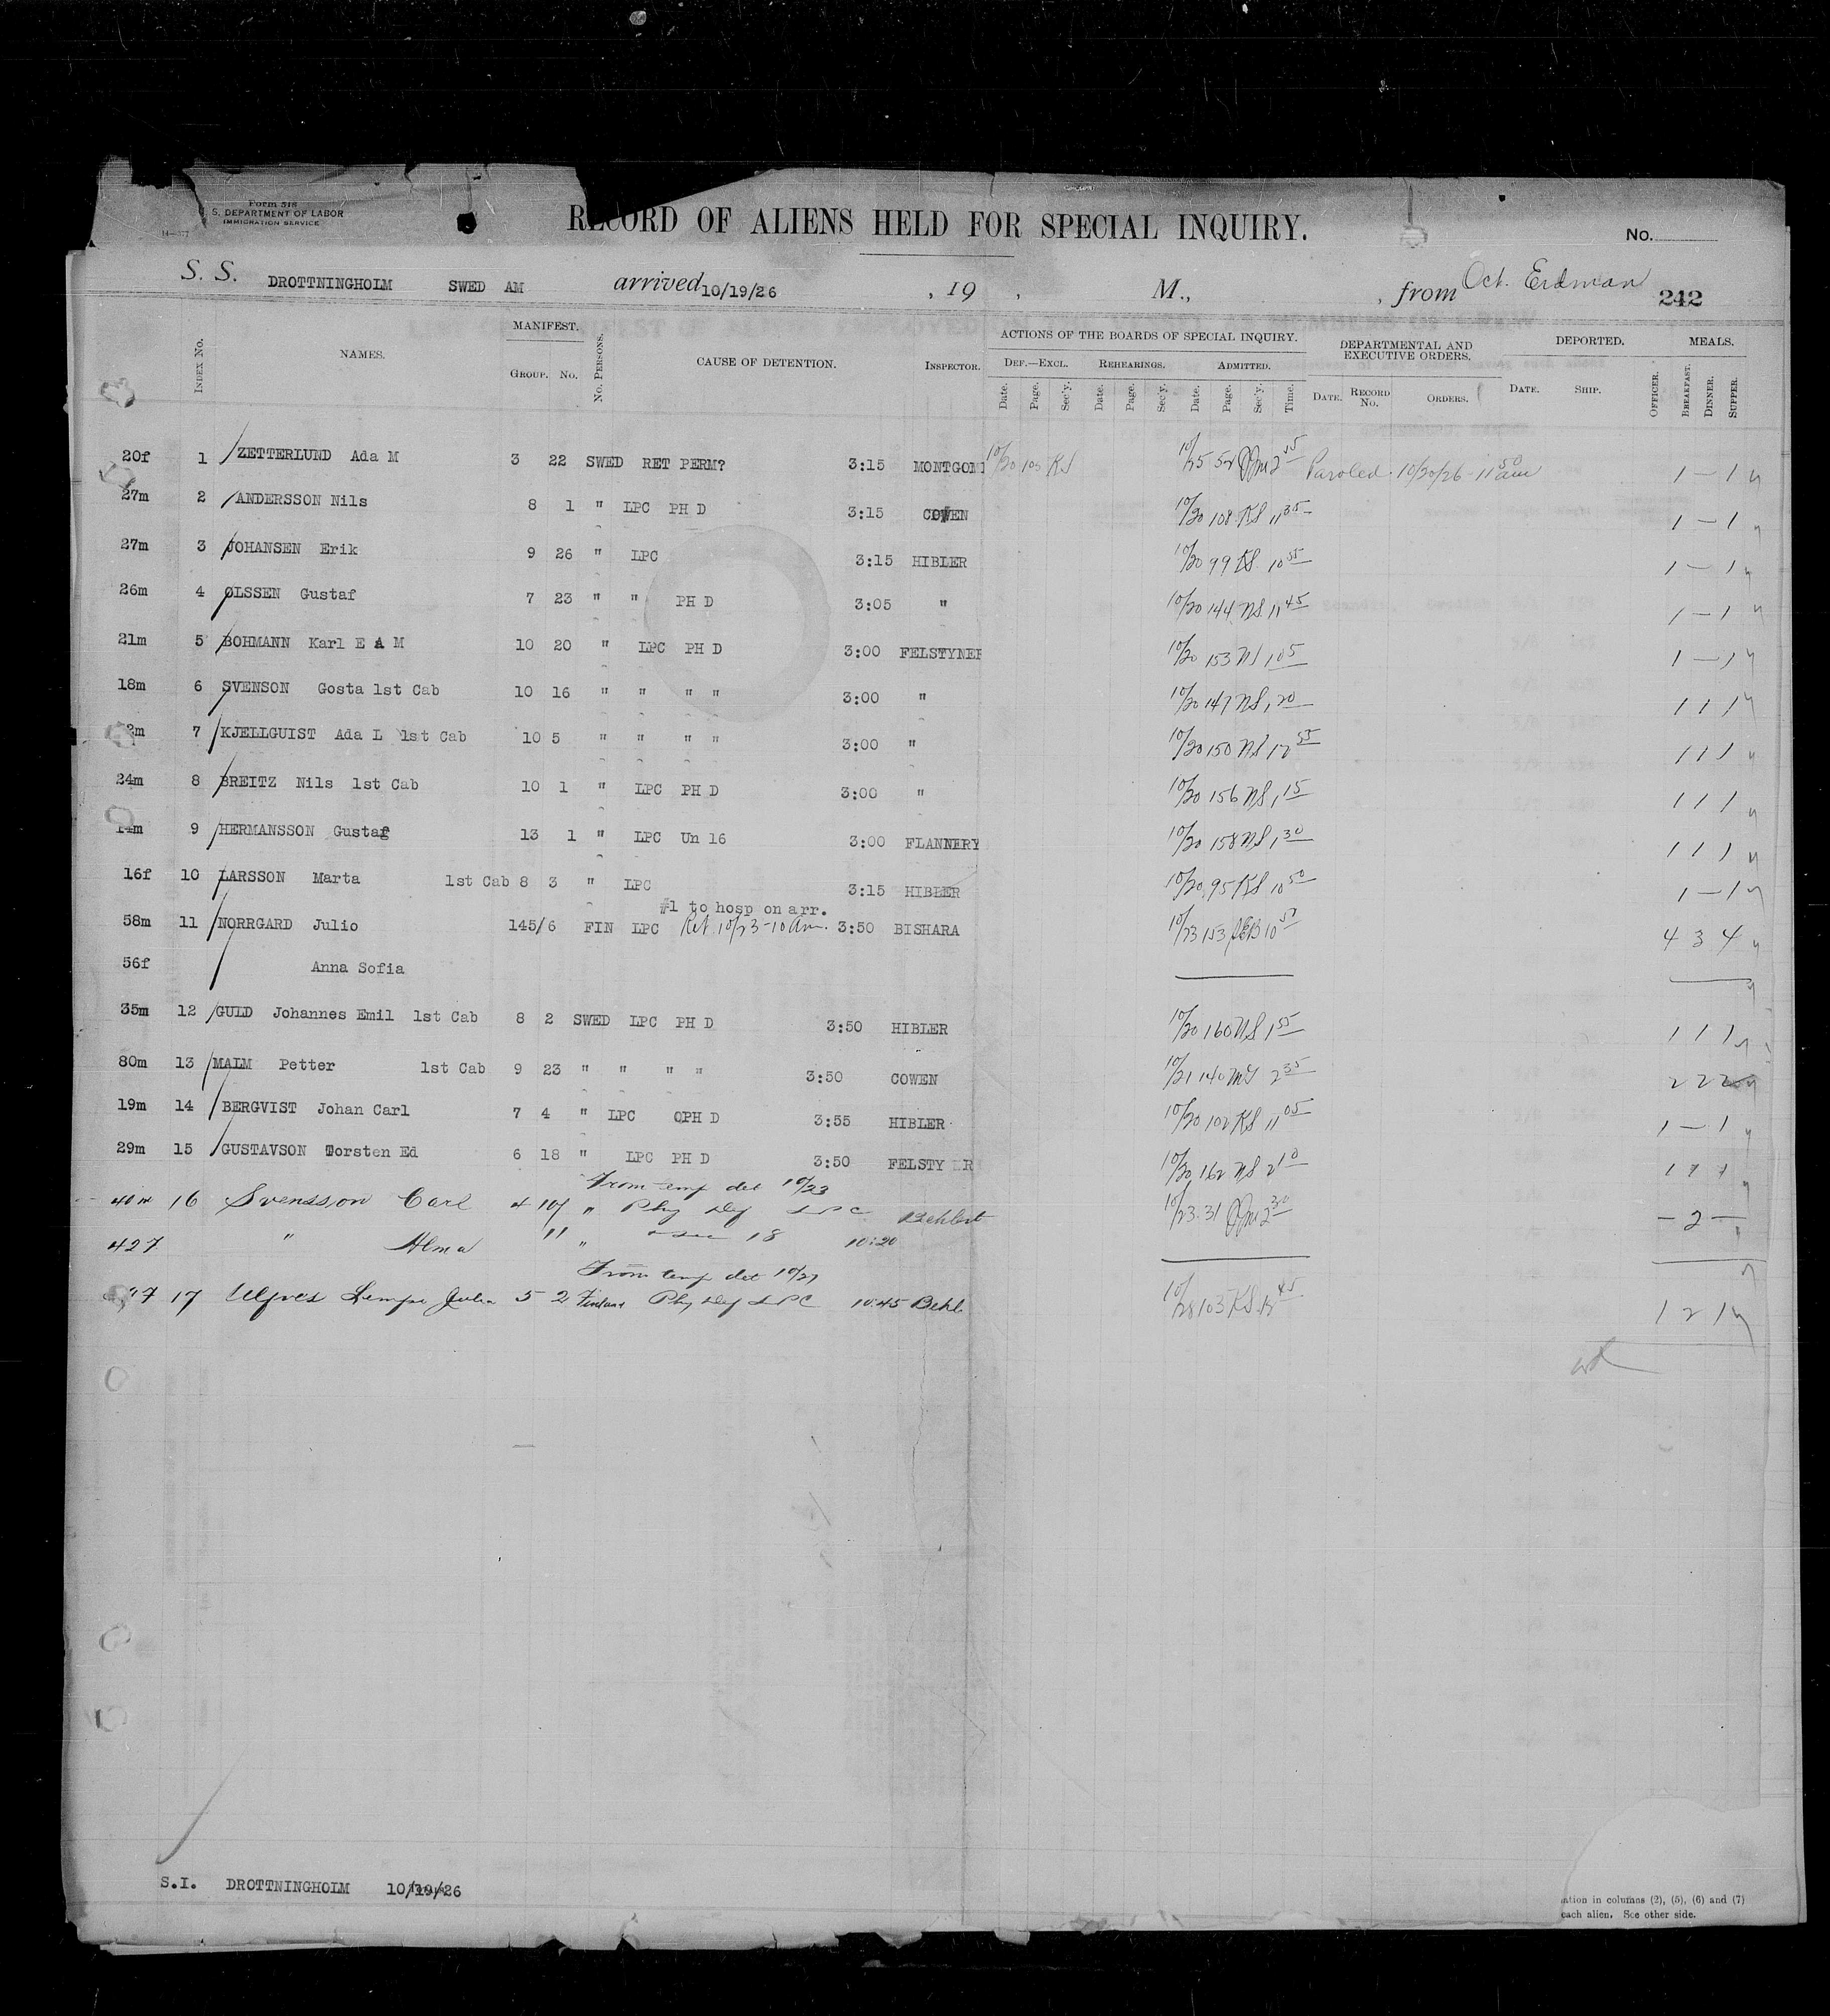 Form 518
S. DEPARTMENT OF LABOR
IMMIGRATION SERVICE
14—577
RECORD OF ALIENS HELD FOR SPECIAL INQUIRY.
No.
S. S. DROTTNINGHOLM SWED AM arrived 10/19/26 , 19 , M., , from Oct. Erdman 242
INDEX NO. NAMES. MANIFEST. GROUP. NO. NO. PERSONS. CAUSE OF DETENTION. INSPECTOR. ACTIONS OF THE BOARDS OF SPECIAL INQUIRY. DEPARTMENTAL AND EXECUTIVE ORDERS. DEPORTED. MEALS.
DEF.—EXCL. REHEARINGS. ADMITTED.
Date. Page. Sec'y. Date. Page. Sec'y. Date. Page. Sec'y. Time. DATE. RECORD NO. ORDERS. DATE. SHIP. OFFICER. BREAKFAST. DINNER. SUPPER.
20f 1 ZETTERLUND Ada M 3 22 SWED RET PERM? 3:15 MONTGOM 10/20 105 KS 10/25 52 2 35 Paroled 10/20/26 - 11 50 am 1 — 1
27m 2 ANDERSSON Nils 8 1 " LPC PH D 3:15 COWEN 10/20 108 KS 11 35 1 — 1
27m 3 JOHANSEN Erik 9 26 " LPC 3:15 HIBLER 10/20 99 KS 10 55 1 — 1
26m 4 OLSSEN Gustaf 7 23 " " PH D 3:05 " 10/20 144 NS 11 45 1 — 1
21m 5 BOHMANN Karl E A M 10 20 " LPC PH D 3:00 FELSTYNER 10/20 153 NS 1 05 1 — 1
18m 6 SVENSON Gosta 1st Cab 10 16 " " " " 3:00 " 10/20 147 NS 1 20 1 1 1
m 7 KJELLGUIST Ada L 1st Cab 10 5 " " " " 3:00 " 10/20 150 NS 12 55 1 1 1
24m 8 BREITZ Nils 1st Cab 10 1 " LPC PH D 3:00 " 10/20 156 NS 1 15 1 1 1
14m 9 HERMANSSON Gustaf 13 1 " LPC Un 16 3:00 FLANNERY 10/20 158 NS 1 30 1 1 1
16f 10 LARSSON Marta 1st Cab 8 3 " LPC 3:15 HIBLER 10/20 95 KS 10 50 1 — 1
#1 to hosp on arr.
58m 11 NORRGARD Julio 145/6 FIN LPC Ret 10/23 - 10 am. 3:50 BISHARA 10/23 153 10 4 3 4
56f Anna Sofia
35m 12 GULD Johannes Emil 1st Cab 8 2 SWED LPC PH D 3:50 HIBLER 10/20 160 NS 1 55 1 1 1
80m 13 MALM Petter 1st Cab 9 23 " " " " 3:50 COWEN 10/21 140 2 35 2 2 2
19m 14 BERGVIST Johan Carl 7 4 " LPC OPH D 3:55 HIBLER 10/20 102 KS 11 05 1 — 1
29m 15 GUSTAVSON Torsten Ed 6 18 " LPC PH D 3:50 FELSTY R 10/20 162 NS 2 10 1 1 1
From temp det 10/23
40m 16 Svensson Carl 4 10 " Phy Def LPC Behlert 10/23 31 2 30 — 2 —
42f " Alma 11 " sec 18 10:20
From temp det 10/27
17 Lempi Julia 5 2 Finland Phy Def LPC 10:45 Behl 10/28 103 KS 12 45 1 2 1
S.I. DROTTNINGHOLM 10/19/26
ation in columns (2), (5), (6) and (7)
each alien. See other side.